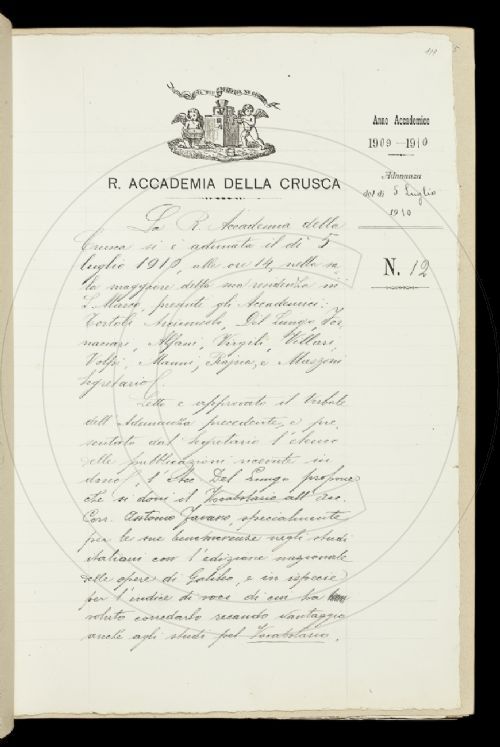 119
R. ACCADEMIA DELLA CRUSCA
Anno Accademico
1909-1910
Adunanza
del dì 5 Luglio
1910
N. 12
La R. Accademia della
Crusca si è adunata il dì 5
luglio 1910, alle ore 14, nella sa
la maggiore della sua residenza in
S. Marco, presenti gli Accademici:
Tortoli Arciconsolo, Del Lungo, For
naciari, Alfani, Virgili, Villari,
Volpi, Manni, Rajna, e Mazzoni
segretario.
Letto e approvato il Verbale
dell'Adunanza precedente, e pre
sentato dal Segretario l'elenco
delle pubblicazioni ricevute in
dono, l'Acc. Del Lungo propone
che si doni il Vocabolario all'Acc.
Corr. Antonio Favaro, specialmente
per le sue benemerenze negli studi
italiani con l'edizione nazionale
delle opere di Galileo, e in ispecie
per l'indice di voci di cui ha
voluto corredarlo recando vantaggio
anche agli studi pel Vocabolario.